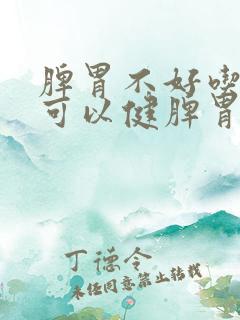 脾胃不好喫
可以健脾胃
丁德令
未经同意禁止转载